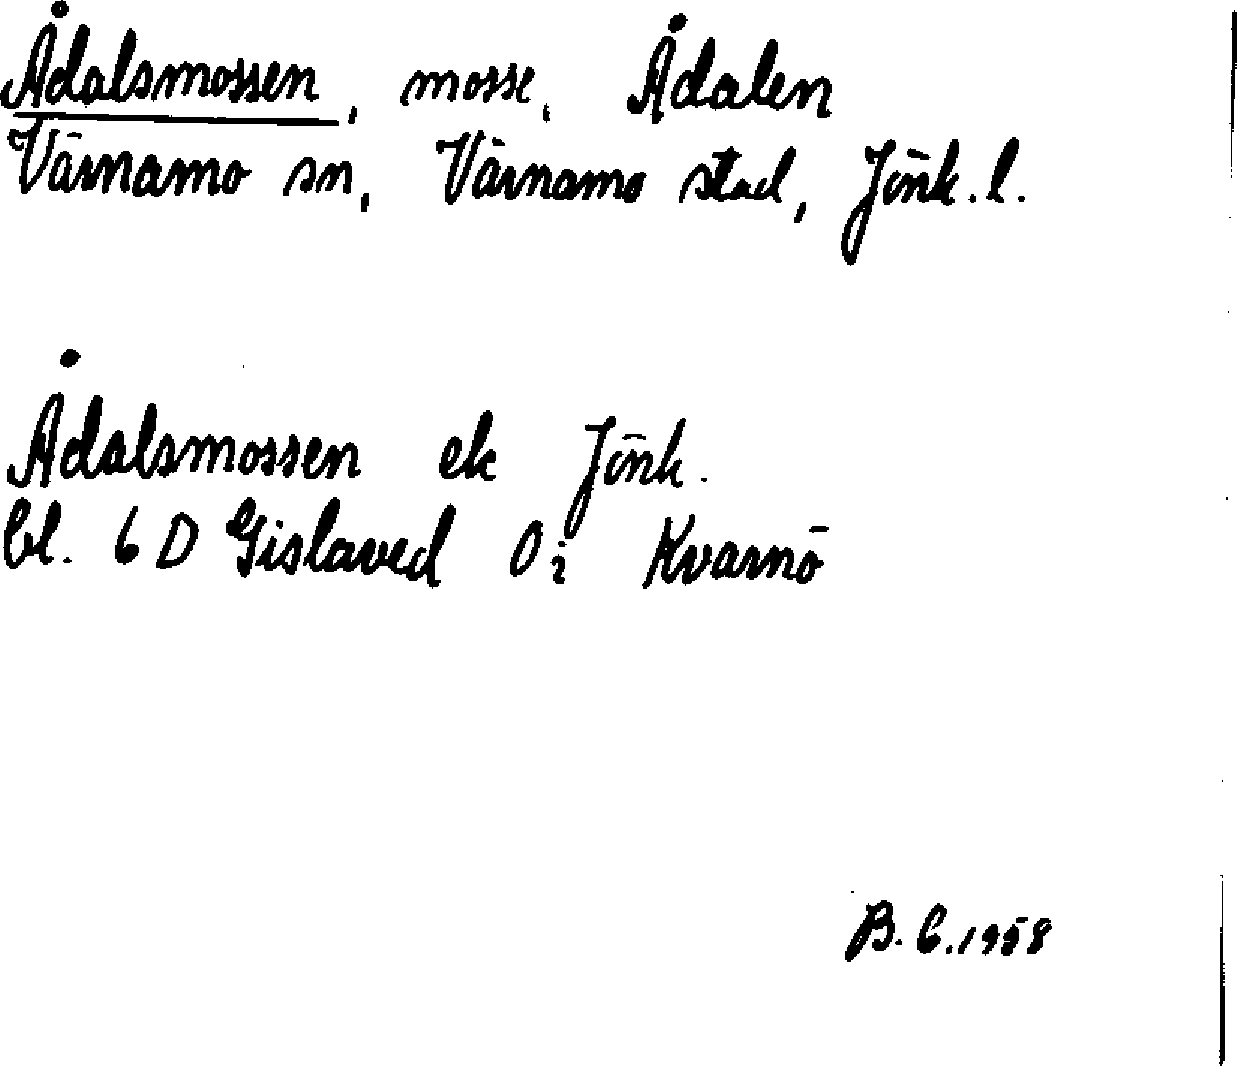 Ådalsmossen, mosse, Ådalen
Värnamo sn, Värnamo stad, Jönk. l.
Ådalsmossen ek Jönk.
bl. 6 D Gislaved Oi Kvarnö
B. C. 1958